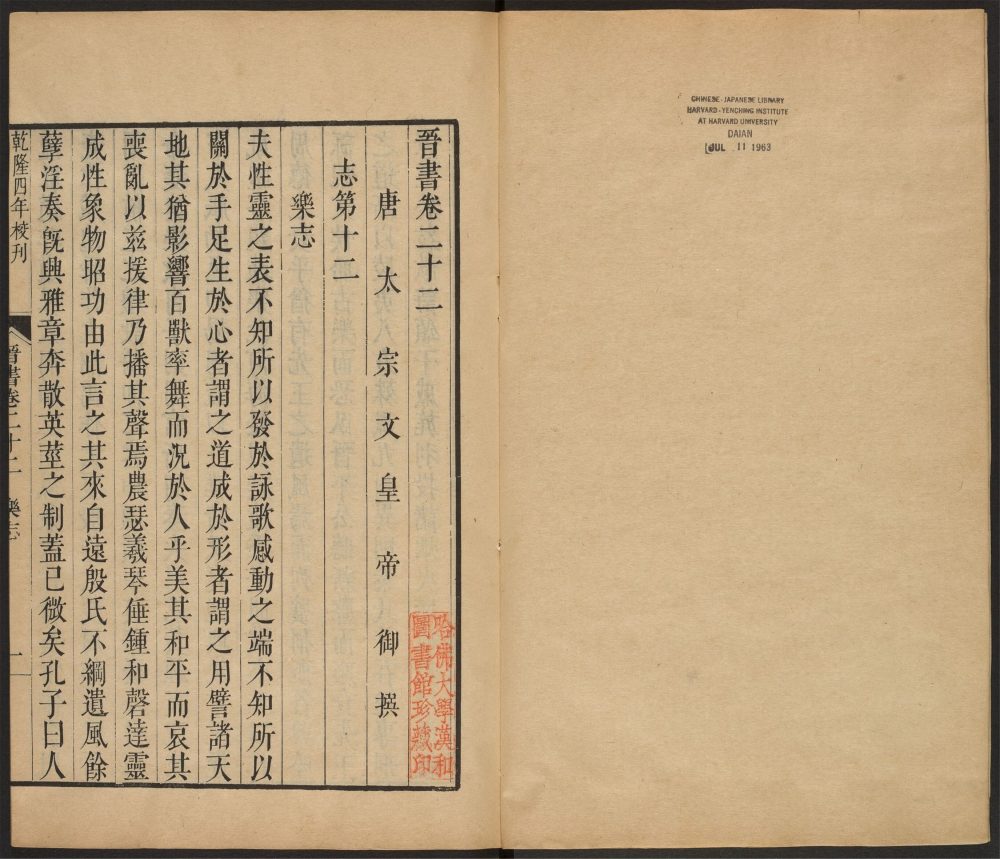 CHINESE-JAPANESE LIBRARY
HARVARD-YENCHING INSTITUTE
AT HARVARD UNIVERSITY
DAIAN
JUL 11 1963
晉書卷二十二
唐太宗文皇帝御撰
志第十二
樂志
夫性靈之表不知所以發於詠歌感動之端不知所以
關於手足生於心者謂之道成於形者謂之用譬諸天
地其猶影響百獸率舞而況於人乎美其和平而哀其
喪亂以茲援律乃播其聲焉農瑟羲琴倕鍾和磬達靈
成性象物昭功由此言之其來自遠殷氏不綱遺風餘
孽淫奏旣興雅章奔散英莖之制蓋已微矣孔子曰人
乾隆四年校刊
晉書卷二十二
樂志
一
哈佛大學漢和
圖書館珍藏印